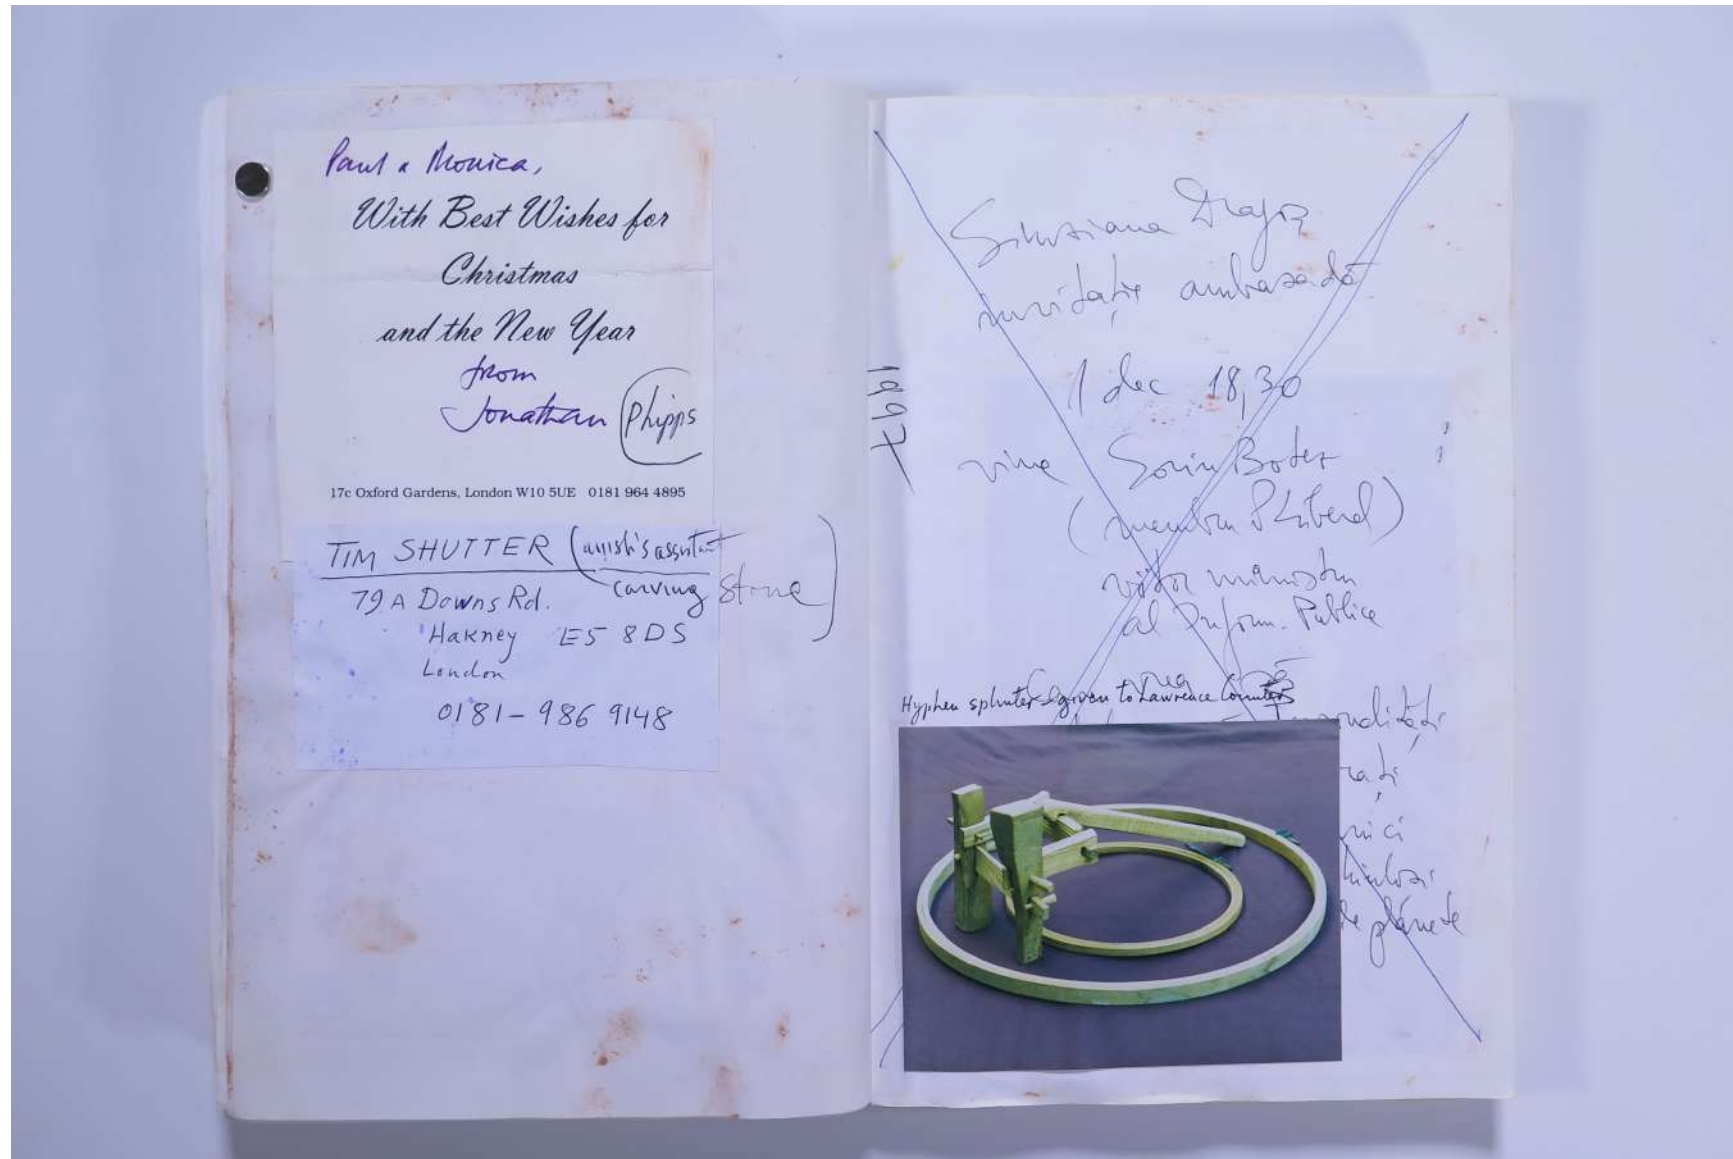 Paul & Monica,
With Best Wishes for
Christmas
and the New Year
from
Jonathan Phipps
17c Oxford Gardens, London W10 5UE 0181 964 4895
TIM SHUTTER (anish's assistant
carving stone)
79A Downs Rd.
Hakney E5 8DS
London
0181-986 9148
1997
invitație ambasadă
1 dec 18,30
vine Sorin
(membru P Liberal)
viitor ministru
al Inform. Publice
Hyphen splinter given to Lawrence
de planete